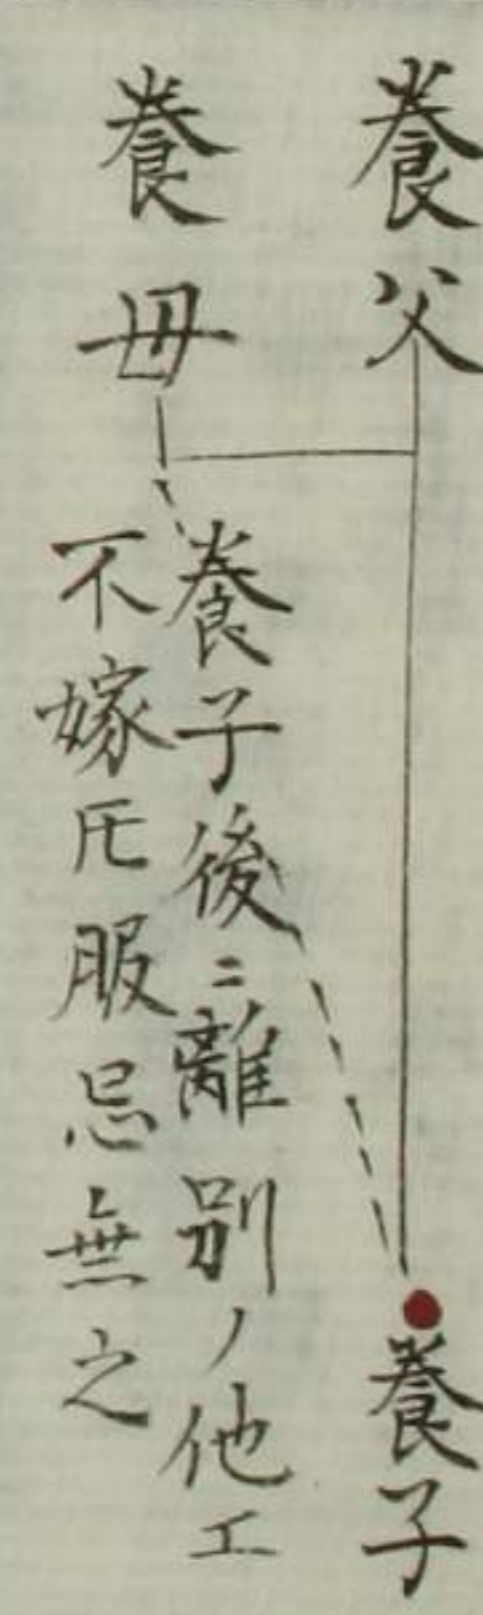 養父
養子
養母
養子後ニ離別ノ他エ
不嫁𪜈服忌無之